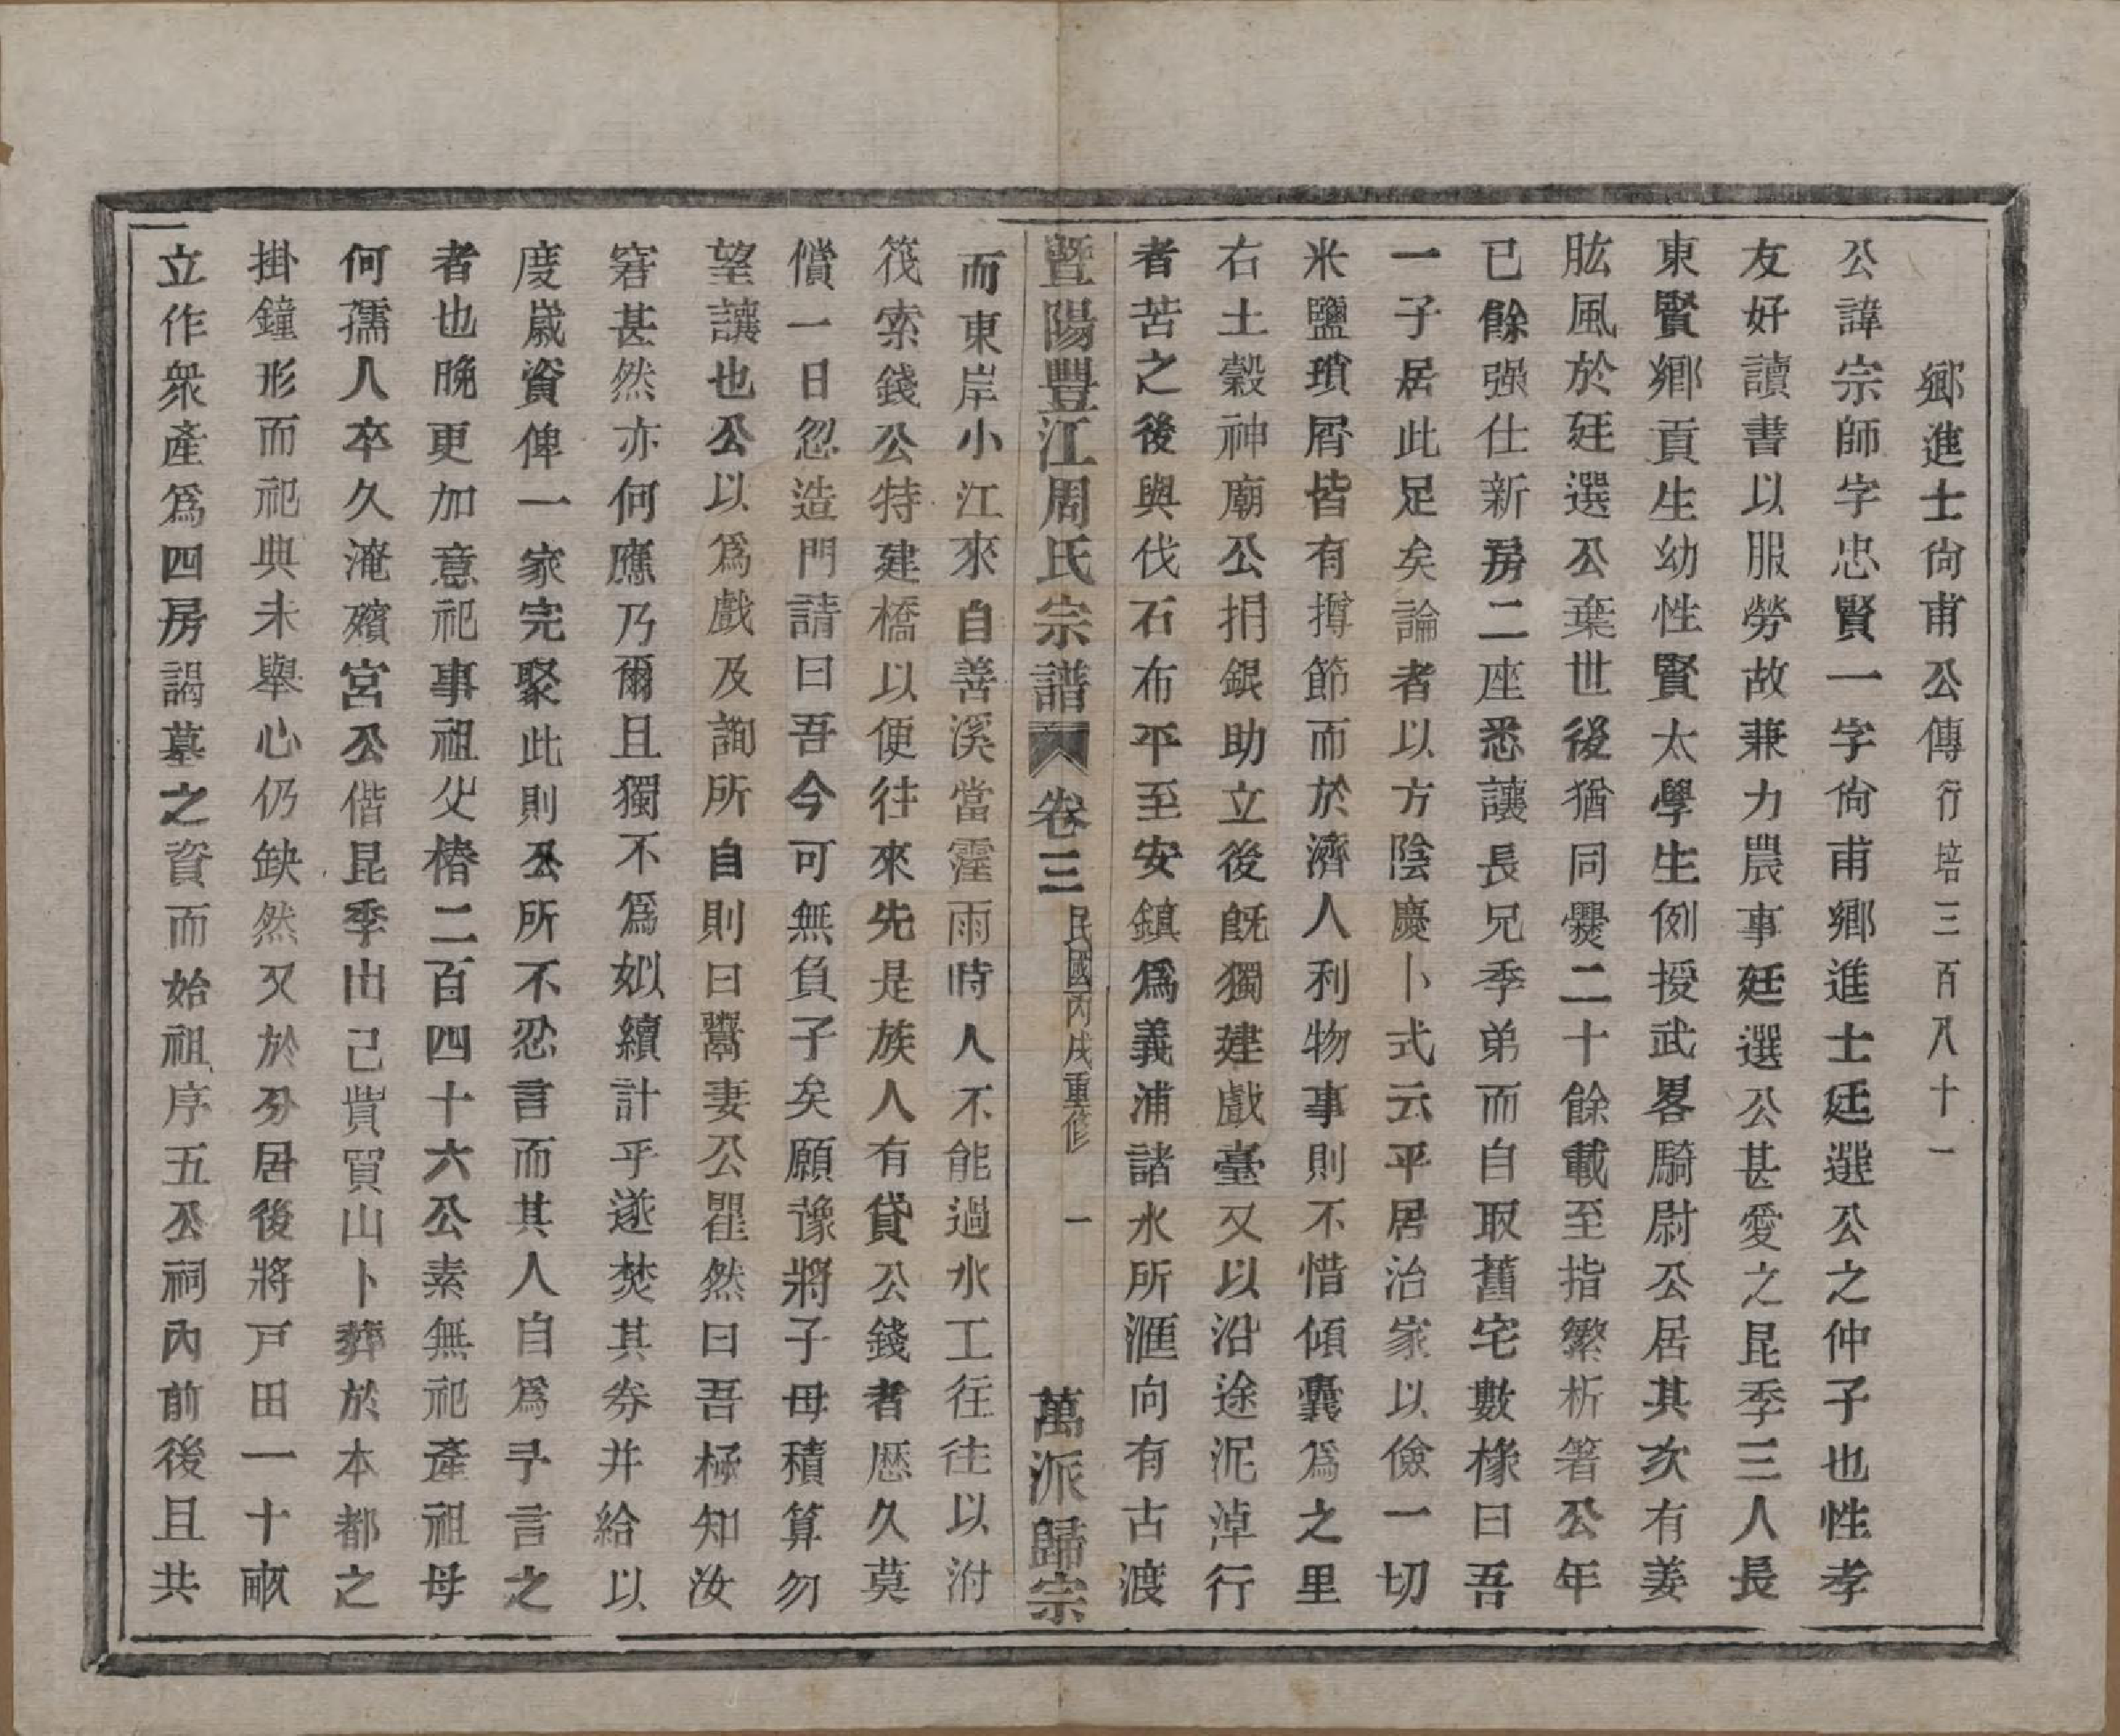 鄉進士尙甫公傳行培三百八十一
公諱宗師字忠賢一字尙甫鄉進士廷選公之仲子也性孝
友好讀書以服勞故兼力農事廷選公甚愛之昆季三人長
東賢鄉貢生幼性賢太學生例授武畧騎尉公居其次有姜
肱風於廷選公棄世後猶同爨二十餘載至指繁析箸公年
已餘强仕新房二座悉讓長兄季弟而自取舊宅數椽曰吾
一子居此足矣論者以方陰慶卜式云平居治家以儉一切
米鹽瑣屑皆有撙節而於濟人利物事則不惜傾囊爲之里
右土穀神廟公捐銀助立後旣獨建戲臺又以沿途泥淖行
者苦之後與伐石布平至安鎮爲義浦諸水所滙向有古渡
暨陽豐江周氏宗譜 卷三 民國丙戌重修 一 萬派歸宗
而東岸小江來自善溪當霪雨時人不能過水工往往以泭
筏索錢公特建橋以便往來先是族人有貸公錢者歷久莫
償一日忽造門請曰吾今可無負子矣願豫將子母積算勿
望讓也公以爲戲及詢所自則曰鬻妻公瞿然曰吾極知汝
窘甚然亦何應乃爾且獨不爲姒續計乎遂焚其券并給以
度歲資俾一家完聚此則公所不忍言而其人自爲予言之
者也晚更加意祀事祖父椿二百四十六公素無祀產祖母
何孺人卒久淹殯宮公偕昆季出己貲買山卜葬於本都之
掛鐘形而祀典未舉心仍缺然又於分居後將戸田一十畝
立作衆產爲四房謁墓之資而始祖序五公祠內前後且共